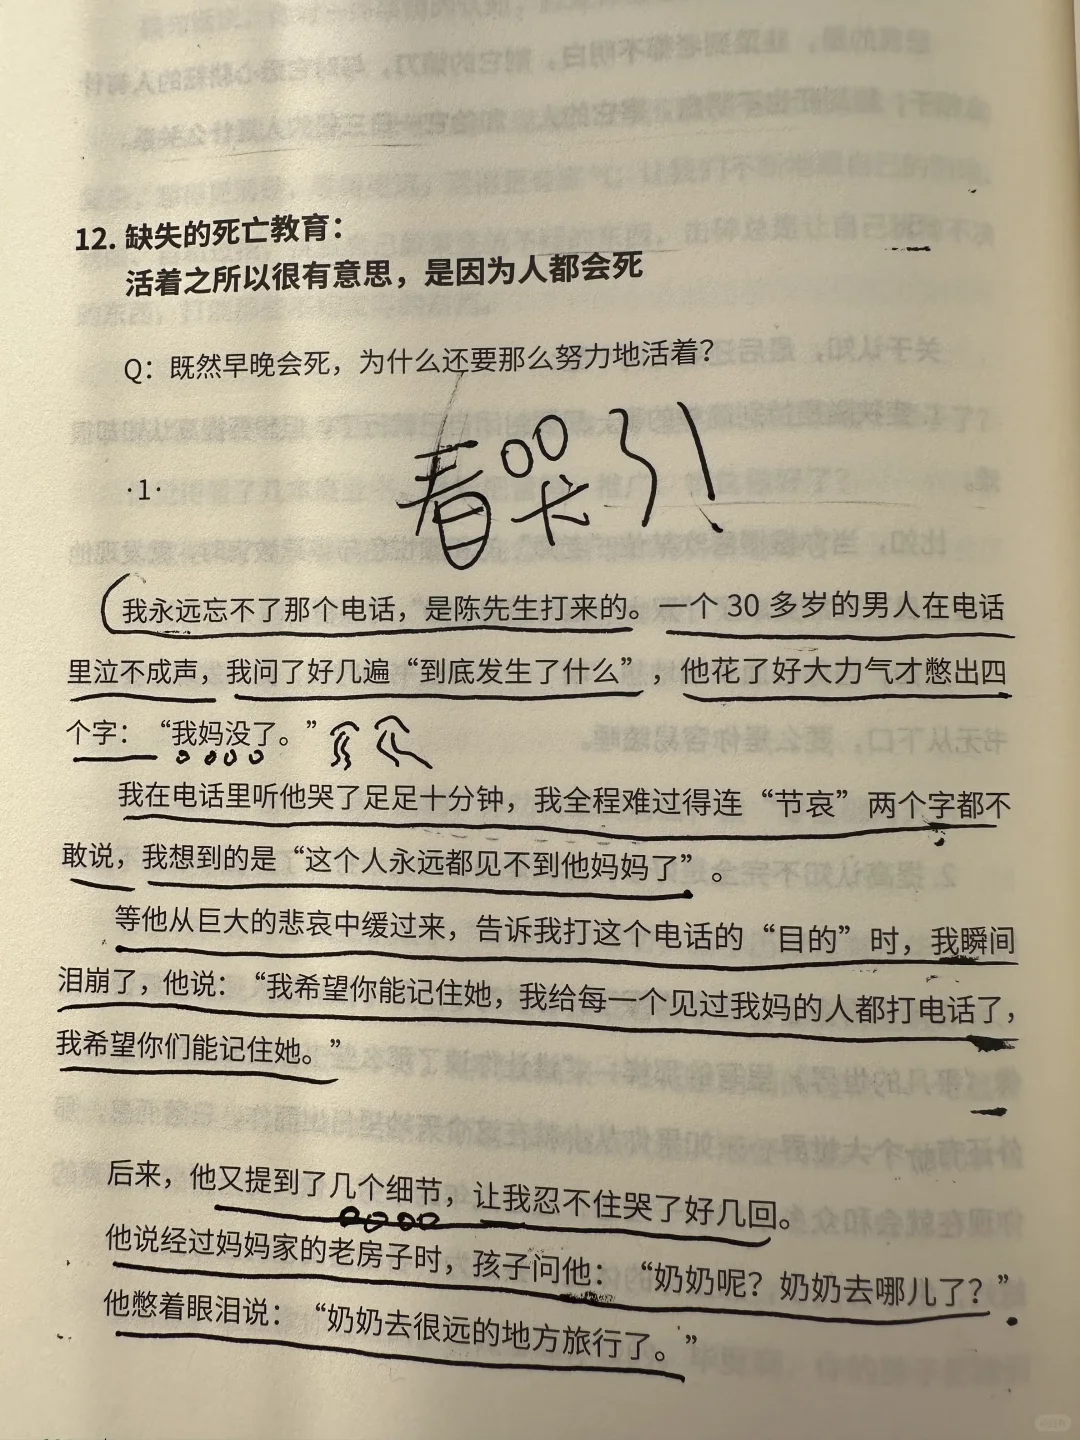 12. 缺失的死亡教育：
活着之所以很有意思，是因为人都会死
Q：既然早晚会死，为什么还要那么努力地活着？
看哭了！
·1·
我永远忘不了那个电话，是陈先生打来的。一个 30 多岁的男人在电话
里泣不成声，我问了好几遍“到底发生了什么”，他花了好大力气才憋出四
个字：“我妈没了。”
我在电话里听他哭了足足十分钟，我全程难过得连“节哀”两个字都不
敢说，我想到的是“这个人永远都见不到他妈妈了”。
等他从巨大的悲哀中缓过来，告诉我打这个电话的“目的”时，我瞬间
泪崩了，他说：“我希望你能记住她，我给每一个见过我妈的人都打电话了，
我希望你们能记住她。”
后来，他又提到了几个细节，让我忍不住哭了好几回。
他说经过妈妈家的老房子时，孩子问他：“奶奶呢？奶奶去哪儿了？”
他憋着眼泪说：“奶奶去很远的地方旅行了。”